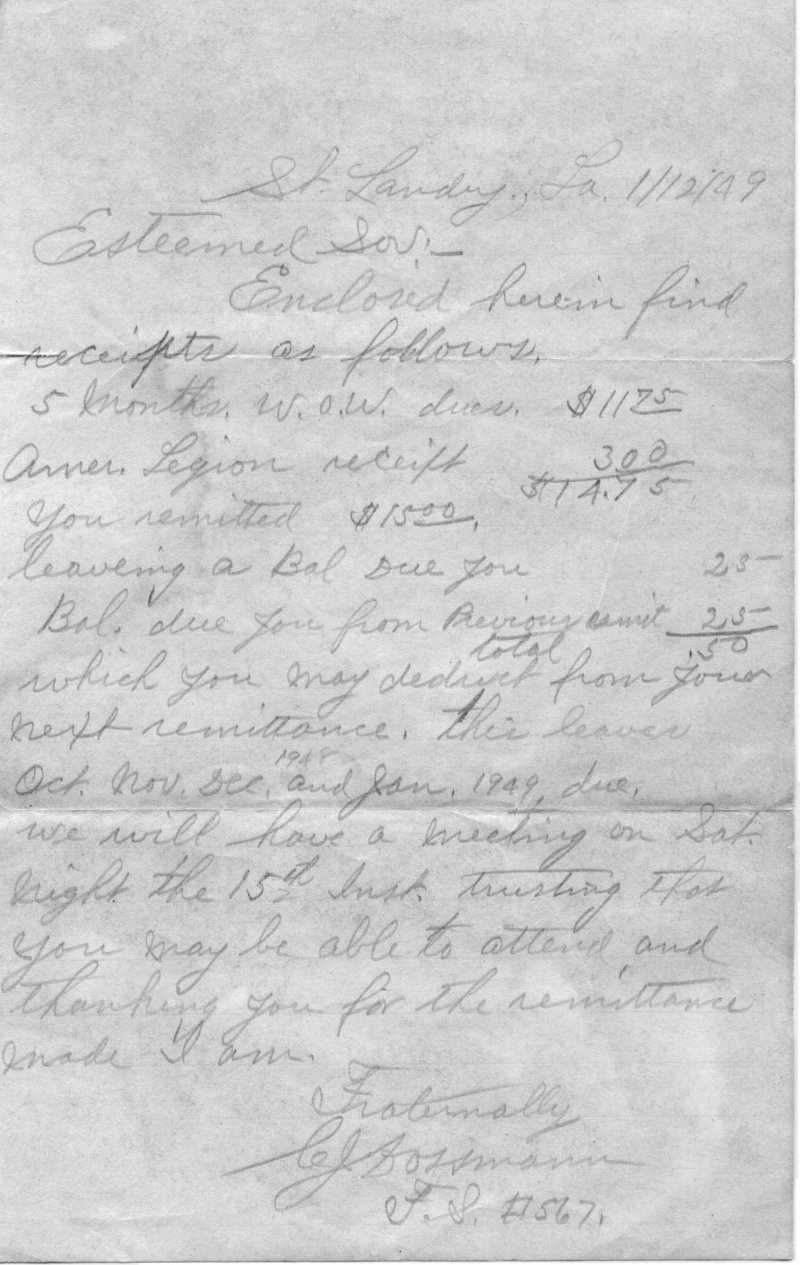 St. Landry, La. 1/12/49
Esteemed Sov:—
Enclosed herein find
receipts as follows.
5 Months. W.O.W. dues. $11 75
Amer. Legion receipt 3 00
$14.75
You remitted $15 00.
leaveing a Bal Due you 25
Bal. due you from Previous remit 25
total .50
which you may deduct from your
next remittance. this leaves
1948
Oct. Nov. Dec. and Jan. 1949, due.
we will have a meeting on Sat.
Night the 15th Inst. trusting that
you may be able to attend, and
thanking you for the remittance
made I am.
Fraternally
CJ Dossmann
F.S. #567.